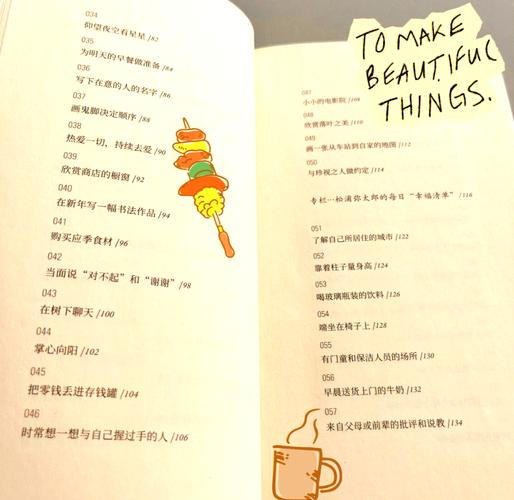 034
仰望夜空看星星 /82
035
为明天的早餐做准备 /84
036
写下在意的人的名字 /86
037
画鬼脚决定顺序 /88
038
热爱一切，持续去爱 /90
039
欣赏商店的橱窗 /92
040
在新年写一幅书法作品 /94
041
购买应季食材 /96
042
当面说“对不起”和“谢谢” /98
043
在树下聊天 /100
044
掌心向阳 /102
045
把零钱丢进存钱罐 /104
046
时常想一想与自己握过手的人 /106
TO MAKE
BEAUTIFUL
THINGS.
047
小小的电影院 /108
048
欣赏落叶之美 /110
049
画一张从车站到自家的地图 /112
050
与珍视之人做约定 /114
专栏…松浦弥太郎的每日“幸福清单” /116
051
了解自己所居住的城市 /122
052
靠着柱子量身高 /124
053
喝玻璃瓶装的饮料 /126
054
端坐在椅子上 /128
055
有门童和保洁人员的场所 /130
056
早晨送货上门的牛奶 /132
057
来自父母或前辈的批评和说教 /134